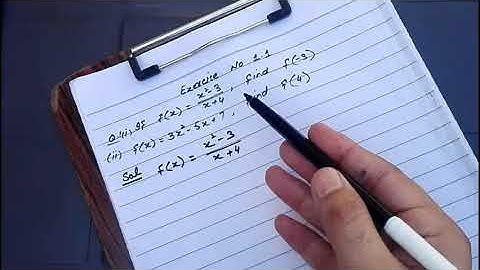 Exercise No 1.1
Q.1(i). If f(x) = x²-3/x+4, find f(-3)
(ii) f(x) = 3x²-5x+7, find f(4)
Sol f(x) = x²-3/x+4